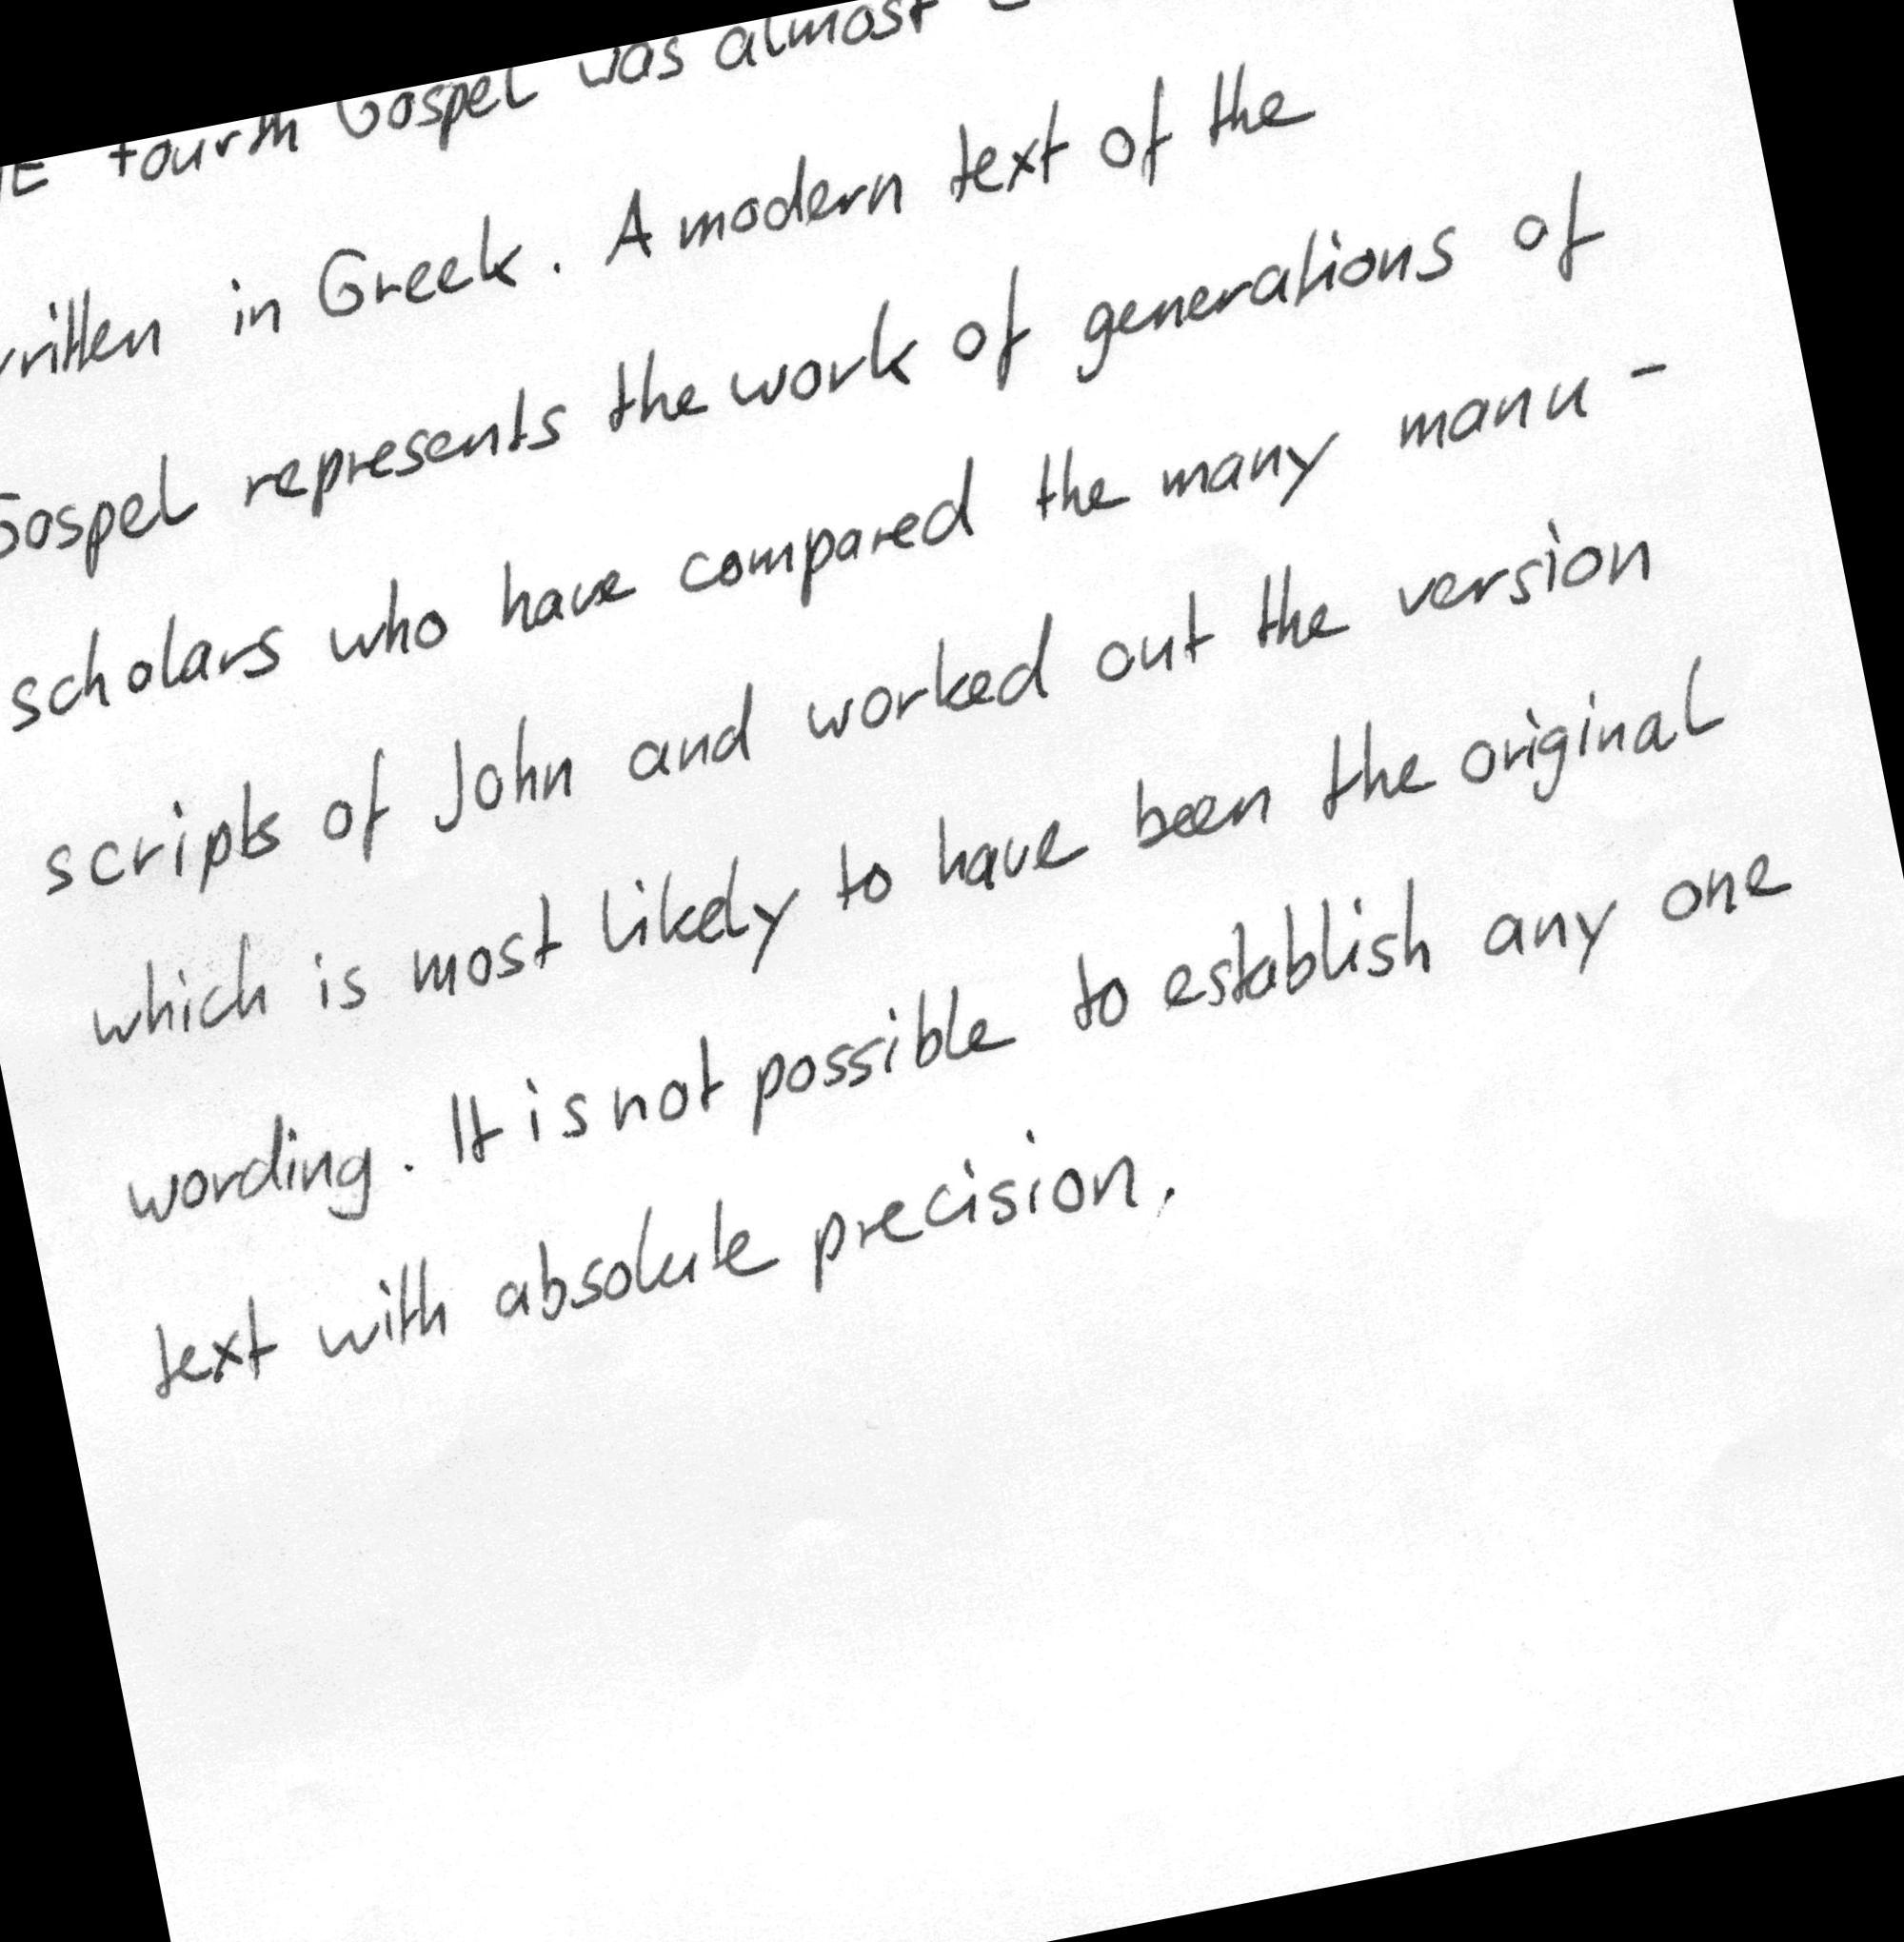 fourth Gospel was almost
written in Greek. A modern text of the
Gospel represents the work of generations of
scholars who have compared the many manu-
scripts of John and worked out the version
which is most likely to have been the original
wording. It is not possible to establish any one
text with absolute precision.